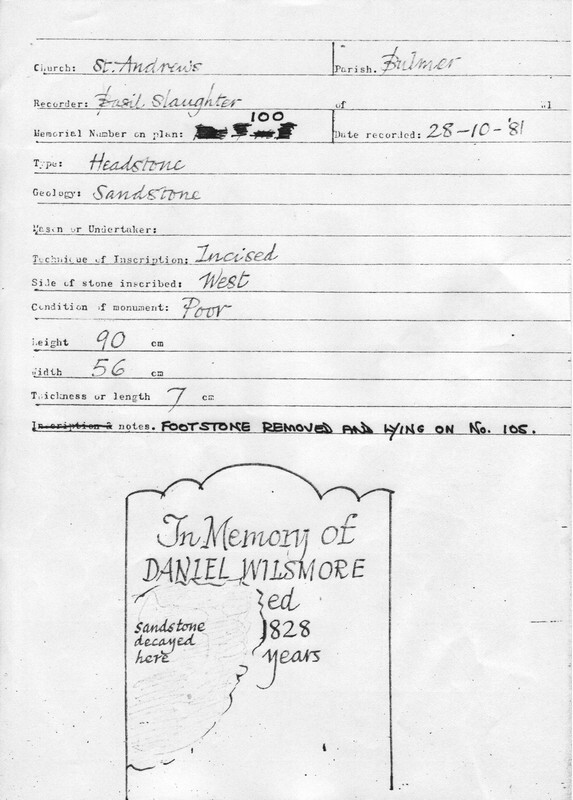 Church: St. Andrew's Parish. Bulmer
Recorder: Basil Slaughter of
100
Memorial Number on plan: Date recorded: 28-10-'81
Type: Headstone
Geology: Sandstone
Mason or Undertaker:
Technique of Inscription: Incised
Side of stone inscribed: West
Condition of monument: Poor
Height 90 cm
Width 56 cm
Thickness or length 7 cm
Inscription & notes. FOOTSTONE REMOVED AND LYING ON No. 105.
In Memory of
DANIEL WILSMORE
ed
sandstone 1828
decayed
here years